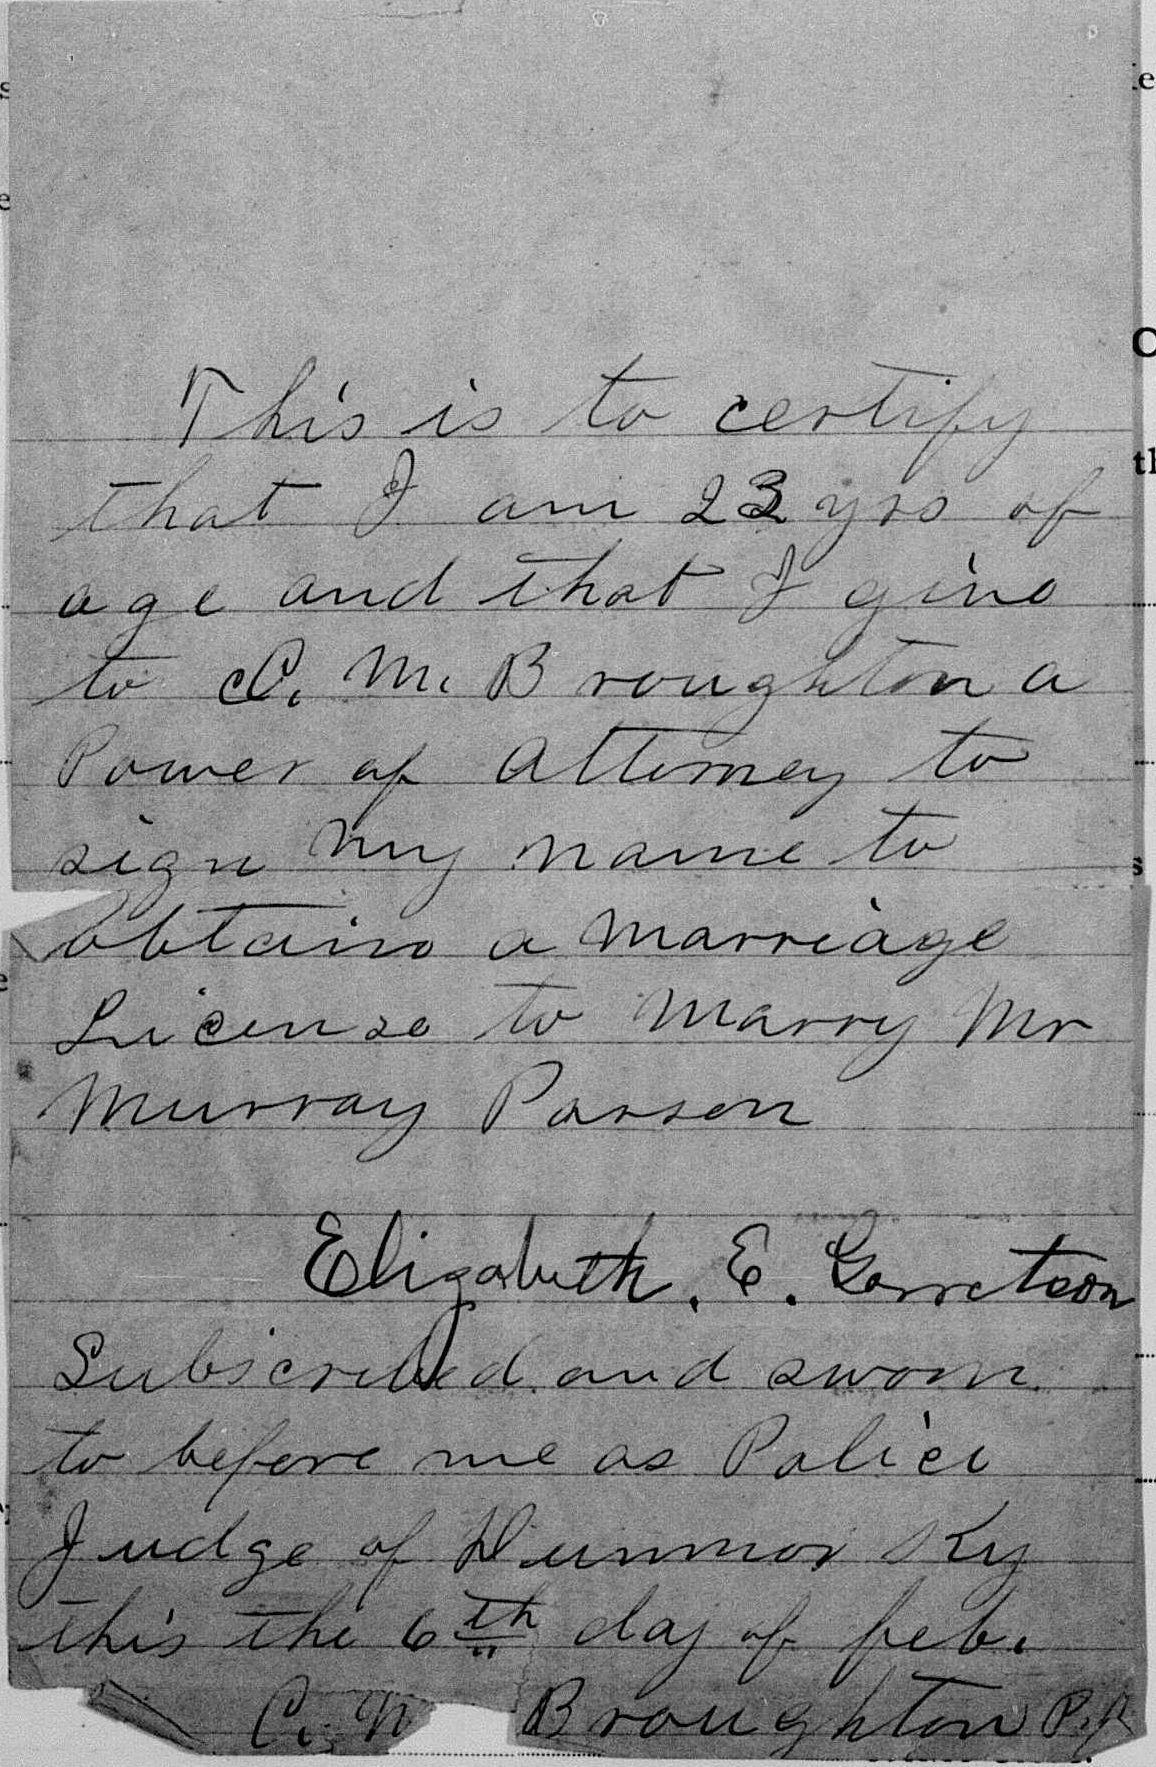 This is to certify
that I am 23 yrs of
age and that I give
to C. M. Broughton a
Power of Attorney to
sign my name to
obtain a marriage
License to marry Mr
Murray Parson
Elizabeth. E. Garretson
Subscribed and sworn
to before me as Police
Judge of Dunmor Ky
this the 6th day of feb.
C. M Broughton P.J